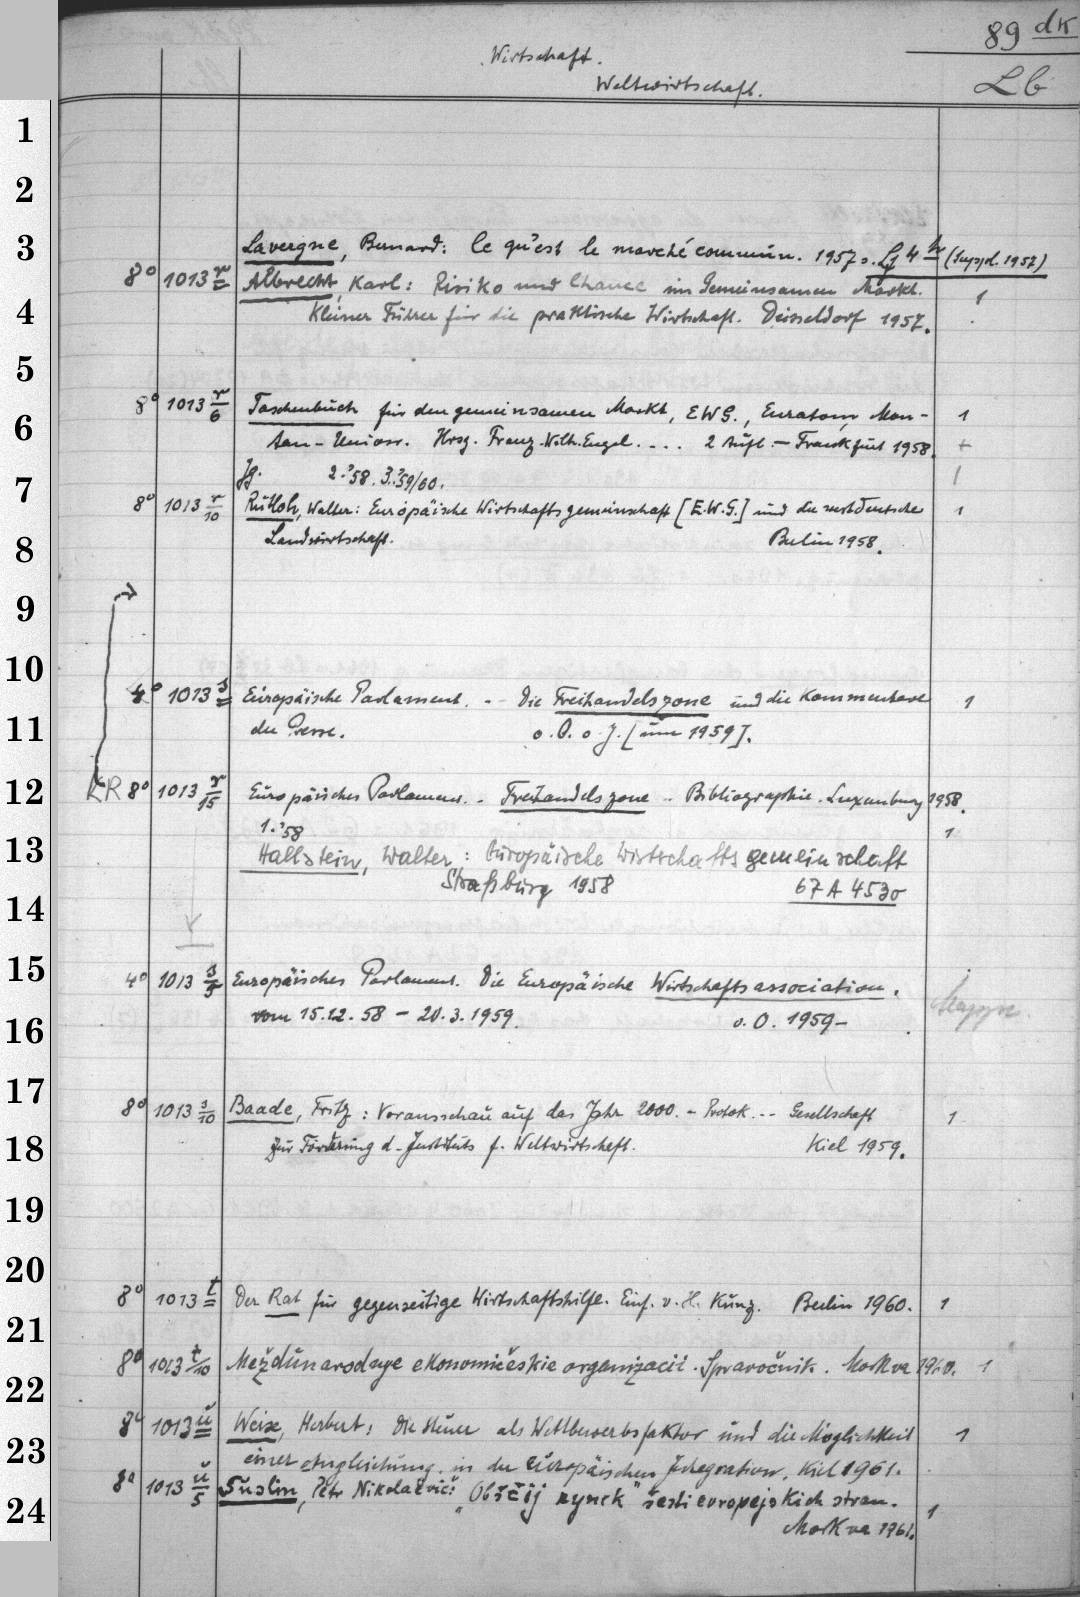 89 dk
Wirtschaft.
Weltwirtschaft.
Lb
1
2
3 Lavergne, Bernard: Ce qu'est le marché commun. 1957 s. Lg 4
8° 1013 r Albrecht, Karl: Risiko und Chance im Gemeinsamen Markt. 1
4 Kleiner Führer für die praktische Wirtschaft. Düsseldorf 1957.
5
8° 1013 r/6 Taschenbuch für den gemeinsamen Markt, EWG., Euratom, Mon- 1
6 tan-Union. Hrsg. Franz-Wilh. Engel. ... 2. Aufl. - Frankfurt 1958. +
7 Jg. 2.'58. 3.'59/60. 1
8° 1013 r/10 Rüthoh, Walter: Europäische Wirtschaftsgemeinschaft [E.W.G.] und die westdeutsche 1
8 Landwirtschaft. Berlin 1958.
9
10
4° 1013 s Europäische Parlament. - - Die Freihandelszone und die Kommentare 1
11 der Presse. o. O. o. J. [um 1959].
12 KR 8° 1013 r/15 Europäisches Parlament. - Freihandelszone - Bibliographie. Luxemburg 1958.
1.'58 1
13 Hallstein, Walter: Europäische Wirtschaftsgemeinschaft
Straßburg 1958 67 A 4530
14
15
4° 1013 s/5 Europäisches Parlament. Die Europäische Wirtschaftsassociation.
16 vom 15.12.58 - 20.3.1959. o. O. 1959-
17
8° 1013 s/10 Baade, Fritz: Vorausschau auf das Jahr 2000. - Protok. -- Gesellschaft 1
18 zur Förderung d. Instituts f. Weltwirtschaft. Kiel 1959.
19
20
8° 1013 t Der Rat für gegenseitige Wirtschaftshilfe. Einf. v. H. Kunz. Berlin 1960. 1
21
8° 1013 t/10 Meždunarodnye ekonomičeskie organizacii. Spravočnik. Moskva 1960. 1
22
8° 1013 u Weise, Herbert: Die Steuer als Wettbewerbsfaktor und die Möglichkeit 1
23 einer Angleichung in der europäischen Integration. Kiel 1961.
8° 1013 u/5 Šuslin, Petr Nikolaevič: "Obščij rynok" šesti evropejskich stran. 1
24 Moskva 1961.